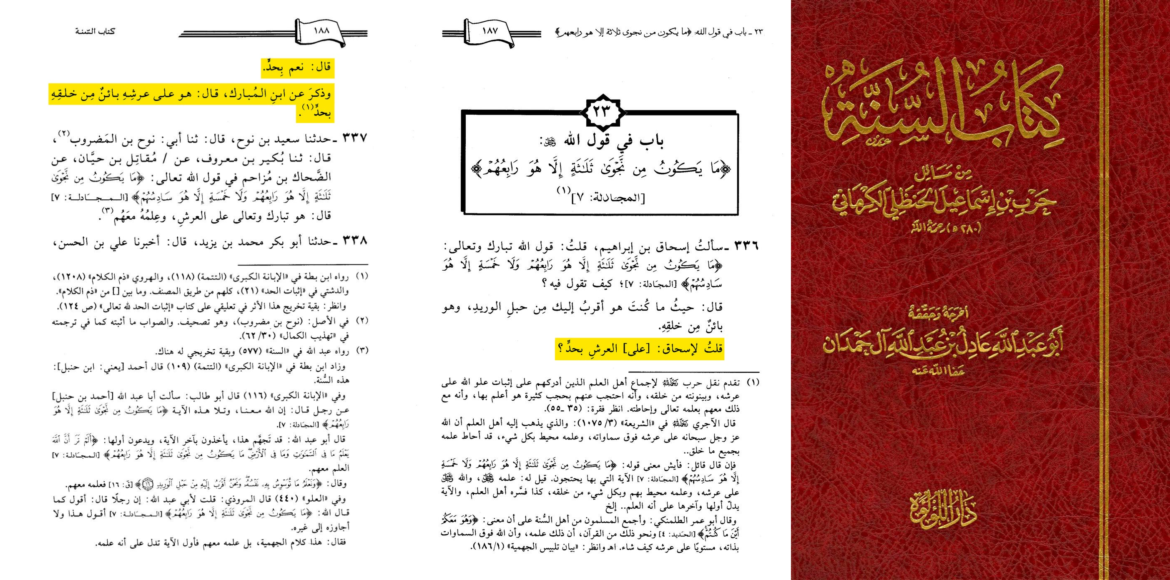 كتاب السنة
من مسائل
حرب بن إسماعيل الحنظلي الكرماني
(٢٨٠ هـ) رحمه الله
أخرجه وحققه
أبو عبد الله عادل بن عبد الله آل حمدان
عفا الله عنه
دار اللؤلؤة
٢٣ ـ باب في قول الله: ﴿ما يكون من نجوى ثلاثة إلا هو رابعهم﴾
١٨٧
٢٣
باب في قول الله ﷻ:
﴿مَا يَكُونُ مِن نَّجْوَىٰ ثَلَٰثَةٍ إِلَّا هُوَ رَابِعُهُمْ﴾
[المجادلة: ٧](١)
٣٣٦ ـ سألتُ إسحاق بن إبراهيم، قلتُ: قول الله تبارك وتعالى:
﴿مَا يَكُونُ مِن نَّجْوَىٰ ثَلَٰثَةٍ إِلَّا هُوَ رَابِعُهُمْ وَلَا خَمْسَةٍ إِلَّا هُوَ
سَادِسُهُمْ﴾ [المجادلة: ٧]؛ كيف تقول فيه؟
قال: حيثُ ما كُنتَ هو أقربُ إليك مِن حبلِ الوريدِ، وهو
بائنٌ مِن خلقِهِ.
قلتُ لإسحاق: [على] العرشِ بحدٍّ؟
(١) تقدم نقل حرب رحمه الله لإجماع أهل العلم الذين أدركهم على إثبات علو الله على
عرشه، وبينونته من خلقه، وأنه احتجب عنهم بحجب كثيرة هو أعلم بها، وأنه مع
ذلك معهم بعلمه تعالى وإحاطته. انظر فقرة: (٣٥ ـ ٥٥).
قال الآجري في «الشريعة» (٣/ ١٠٧٥): والذي يذهب إليه أهل العلم أن الله
عز وجل سبحانه على عرشه فوق سماواته، وعلمه محيط بكل شيء، قد أحاط علمه
بجميع ما خلق..
فإن قال قائل: فأيش معنى قوله: ﴿مَا يَكُونُ مِن نَّجْوَىٰ ثَلَٰثَةٍ إِلَّا هُوَ رَابِعُهُمْ وَلَا خَمْسَةٍ
إِلَّا هُوَ سَادِسُهُمْ﴾ [المجادلة: ٧] الآية التي بها يحتجون. قيل له: علمه، والله ﷻ
على عرشه، وعلمه محيط بهم وبكل شيء من خلقه، كذا فسَّره أهل العلم، والآية
يدلّ أولها وآخرها على أنه العلم.. إلخ
وقال أبو عمر الطلمنكي: وأجمع المسلمون من أهل السُّنة على أن معنى: ﴿وَهُوَ مَعَكُمْ
أَيْنَ مَا كُنتُمْ﴾ [الحديد: ٤] ونحو ذلك من القرآن، أن ذلك علمه، وأن الله فوق السماوات
بذاته، مستويًا على عرشه كيف شاء. اهـ وانظر: «بيان تلبيس الجهمية» (١/ ١٨٦)
كتاب السنة
١٨٨
قال: نعم بِحدٍّ.
وذكرَ عن ابنِ المُبارك، قال: هو على عرشِهِ بائنٌ مِن خلقِهِ
بحدٍّ(١).
٣٣٧ ـ حدثنا سعيد بن نوح، قال: ثنا أبي: نوح بن المَضروب(٢)،
قال: ثنا بُكير بن معروف، عن / مُقاتِل بن حيَّان، عن
الضَّحاك بن مُزاحم في قول الله تعالى: ﴿مَا يَكُونُ مِن نَّجْوَىٰ
ثَلَٰثَةٍ إِلَّا هُوَ رَابِعُهُمْ وَلَا خَمْسَةٍ إِلَّا هُوَ سَادِسُهُمْ﴾ [المجادلة: ٧]
قال: هو تبارك وتعالى على العرشِ، وعِلمُهُ معَهُم(٣).
٣٣٨ ـ حدثنا أبو بكر محمد بن يزيد، قال: أخبرنا علي بن الحسن،
(١) رواه ابن بطة في «الإبانة الكبرى» (التتمة) (١١٨)، والهروي «ذم الكلام» (١٢٠٨)،
والدشتي في «إثبات الحد» (٢١)، كلهم من طريق المصنف. وما بين [] من «ذم الكلام».
وانظر: بقية تخريج هذا الأثر في تعليقي على كتاب «إثبات الحد لله تعالى» (ص ١٢٤).
(٢) في الأصل: (نوح بن مضروب)، وهو تصحيف. والصواب ما أثبته كما في ترجمته
في «تهذيب الكمال» (٣٠/ ٦٢).
(٣) رواه عبد الله في «السنة» (٥٧٧) وبقية تخريجي له هناك.
وزاد ابن بطة في «الإبانة الكبرى» (التتمة) (١٠٩) قال أحمد [يعني: ابن حنبل]:
هذه السُّنة.
وفي «الإبانة الكبرى» (١١٦) قال أبو طالب: سألت أبا عبد الله [أحمد بن حنبل]
عن رجل قال: إن الله معنا، وتلا هذه الآية ﴿مَا يَكُونُ مِن نَّجْوَىٰ ثَلَٰثَةٍ إِلَّا هُوَ
رَابِعُهُمْ﴾ [المجادلة: ٧].
قال أبو عبد الله: قد تَجهَّم هذا، يأخذون بآخر الآية، ويدعون أولها: ﴿أَلَمْ تَرَ أَنَّ اللَّهَ
يَعْلَمُ مَا فِي السَّمَٰوَٰتِ وَمَا فِي الْأَرْضِ مَا يَكُونُ مِن نَّجْوَىٰ ثَلَٰثَةٍ إِلَّا هُوَ رَابِعُهُمْ﴾ [المجادلة: ٧]
العلم معهم.
وقال: ﴿وَنَعْلَمُ مَا تُوَسْوِسُ بِهِ نَفْسُهُ وَنَحْنُ أَقْرَبُ إِلَيْهِ مِنْ حَبْلِ الْوَرِيدِ﴾ [ق: ١٦] فعلمه معهم.
وفي «العلو» (٤٤٠) قال المروذي: قلت لأبي عبد الله: إن رجلًا قال: أقول كما
قال الله: ﴿مَا يَكُونُ مِن نَّجْوَىٰ ثَلَٰثَةٍ إِلَّا هُوَ رَابِعُهُمْ﴾ [المجادلة: ٧] أقول هذا ولا
أجاوزه إلى غيره.
فقال: هذا كلام الجهمية، بل علمه معهم فأول الآية تدل على أنه علمه.